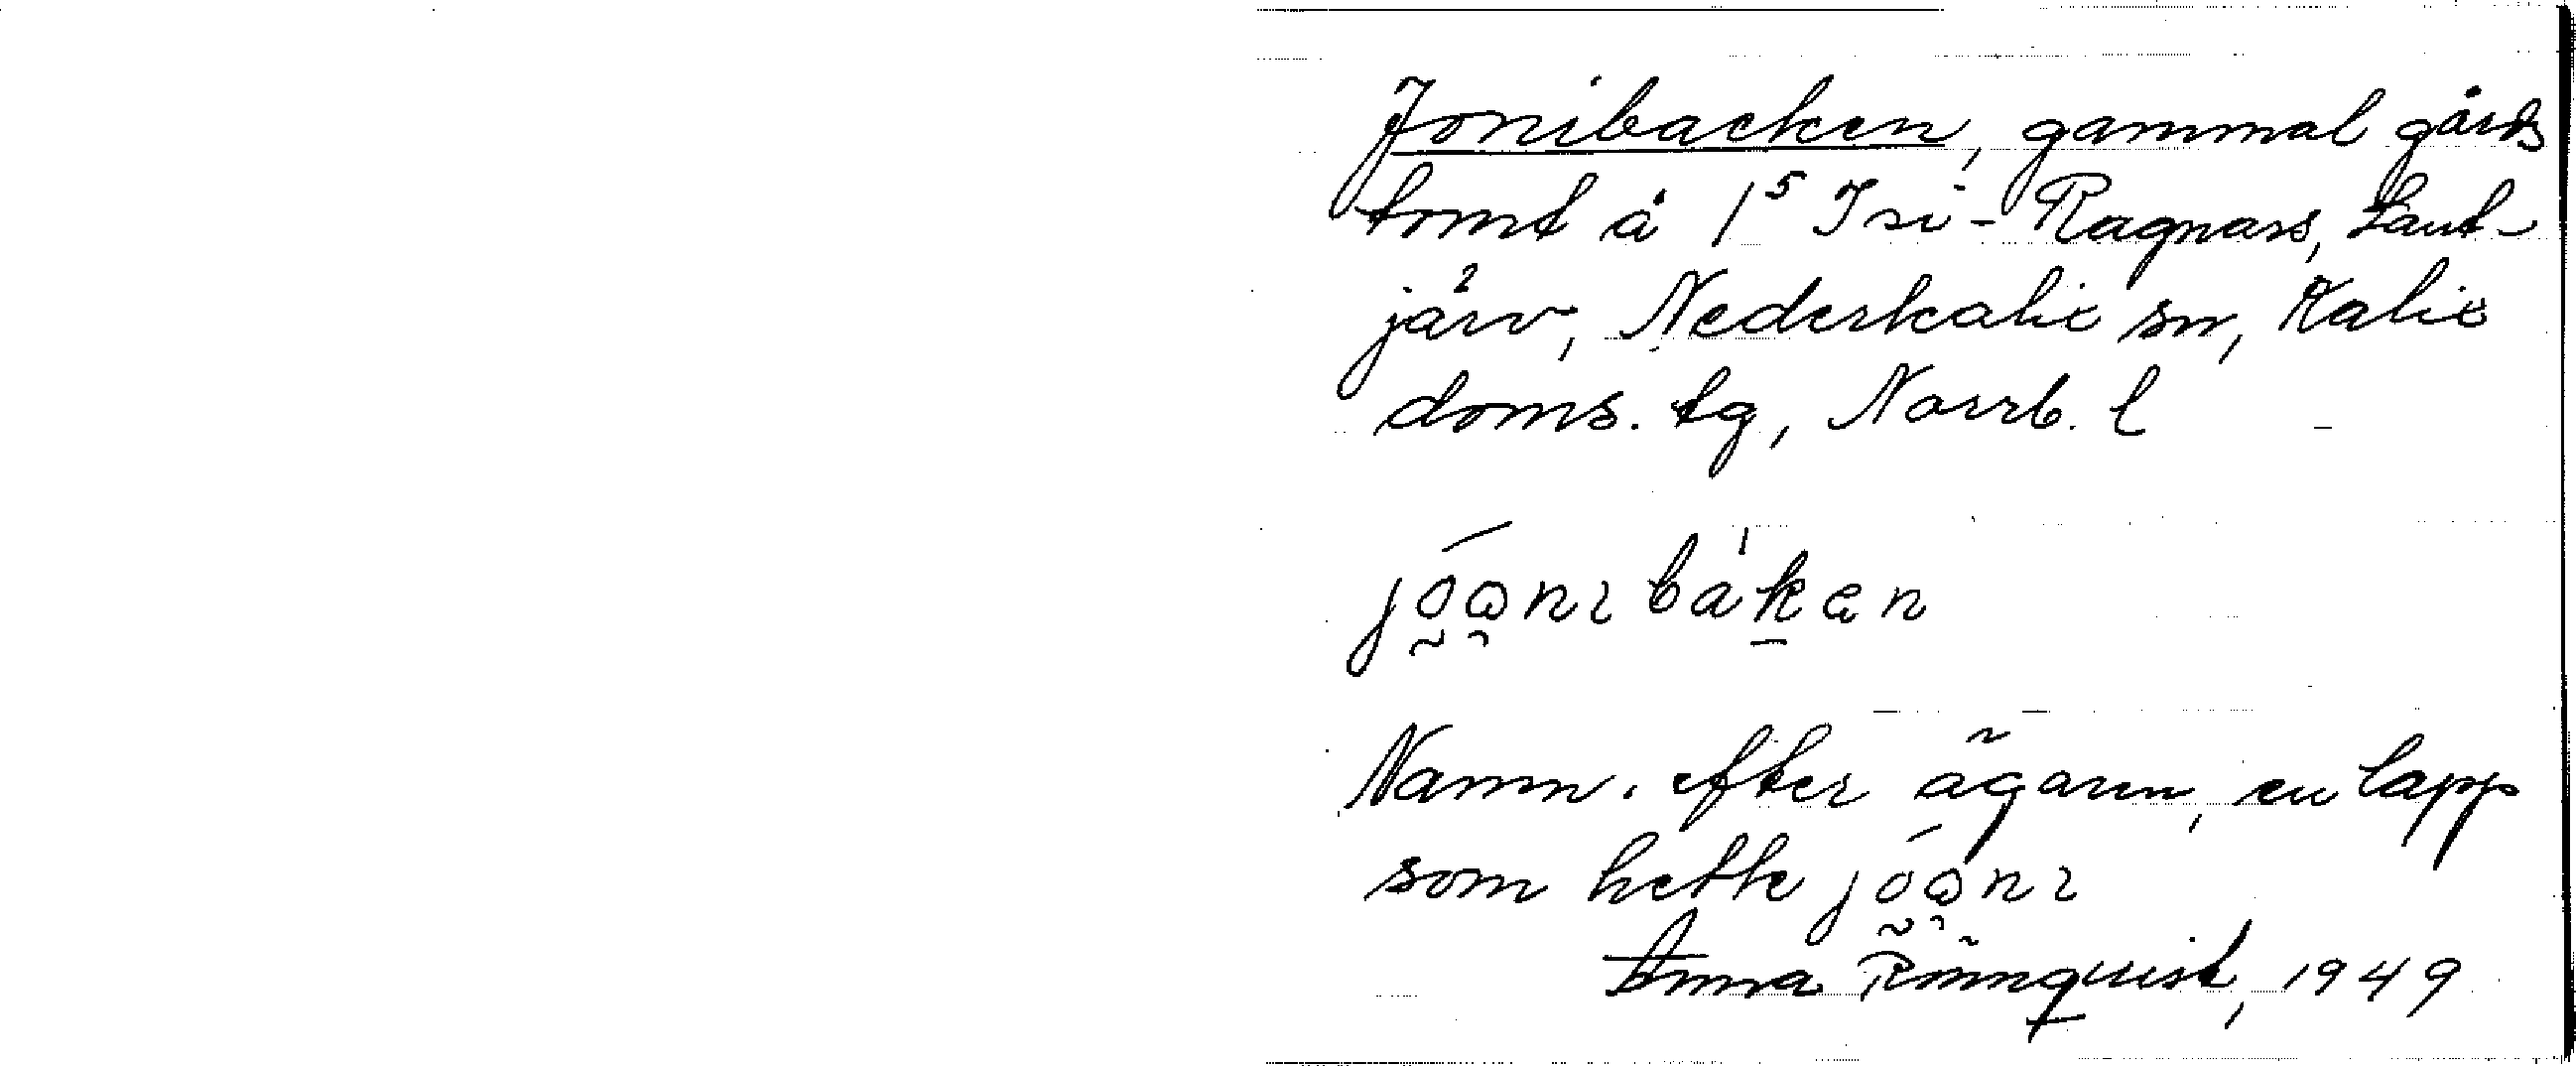 Jonibacken, gammal gårds
tomt å 1⁵ Isi-Ragnars, Laut-
järv, Nederkalix sn, Kalix
doms. tg, Norrb. l
jóɷnɩ bákɐn
Namn. efter ägaren, en lapp
som hette jóɷnɩ
Anna Rönnquist, 1949